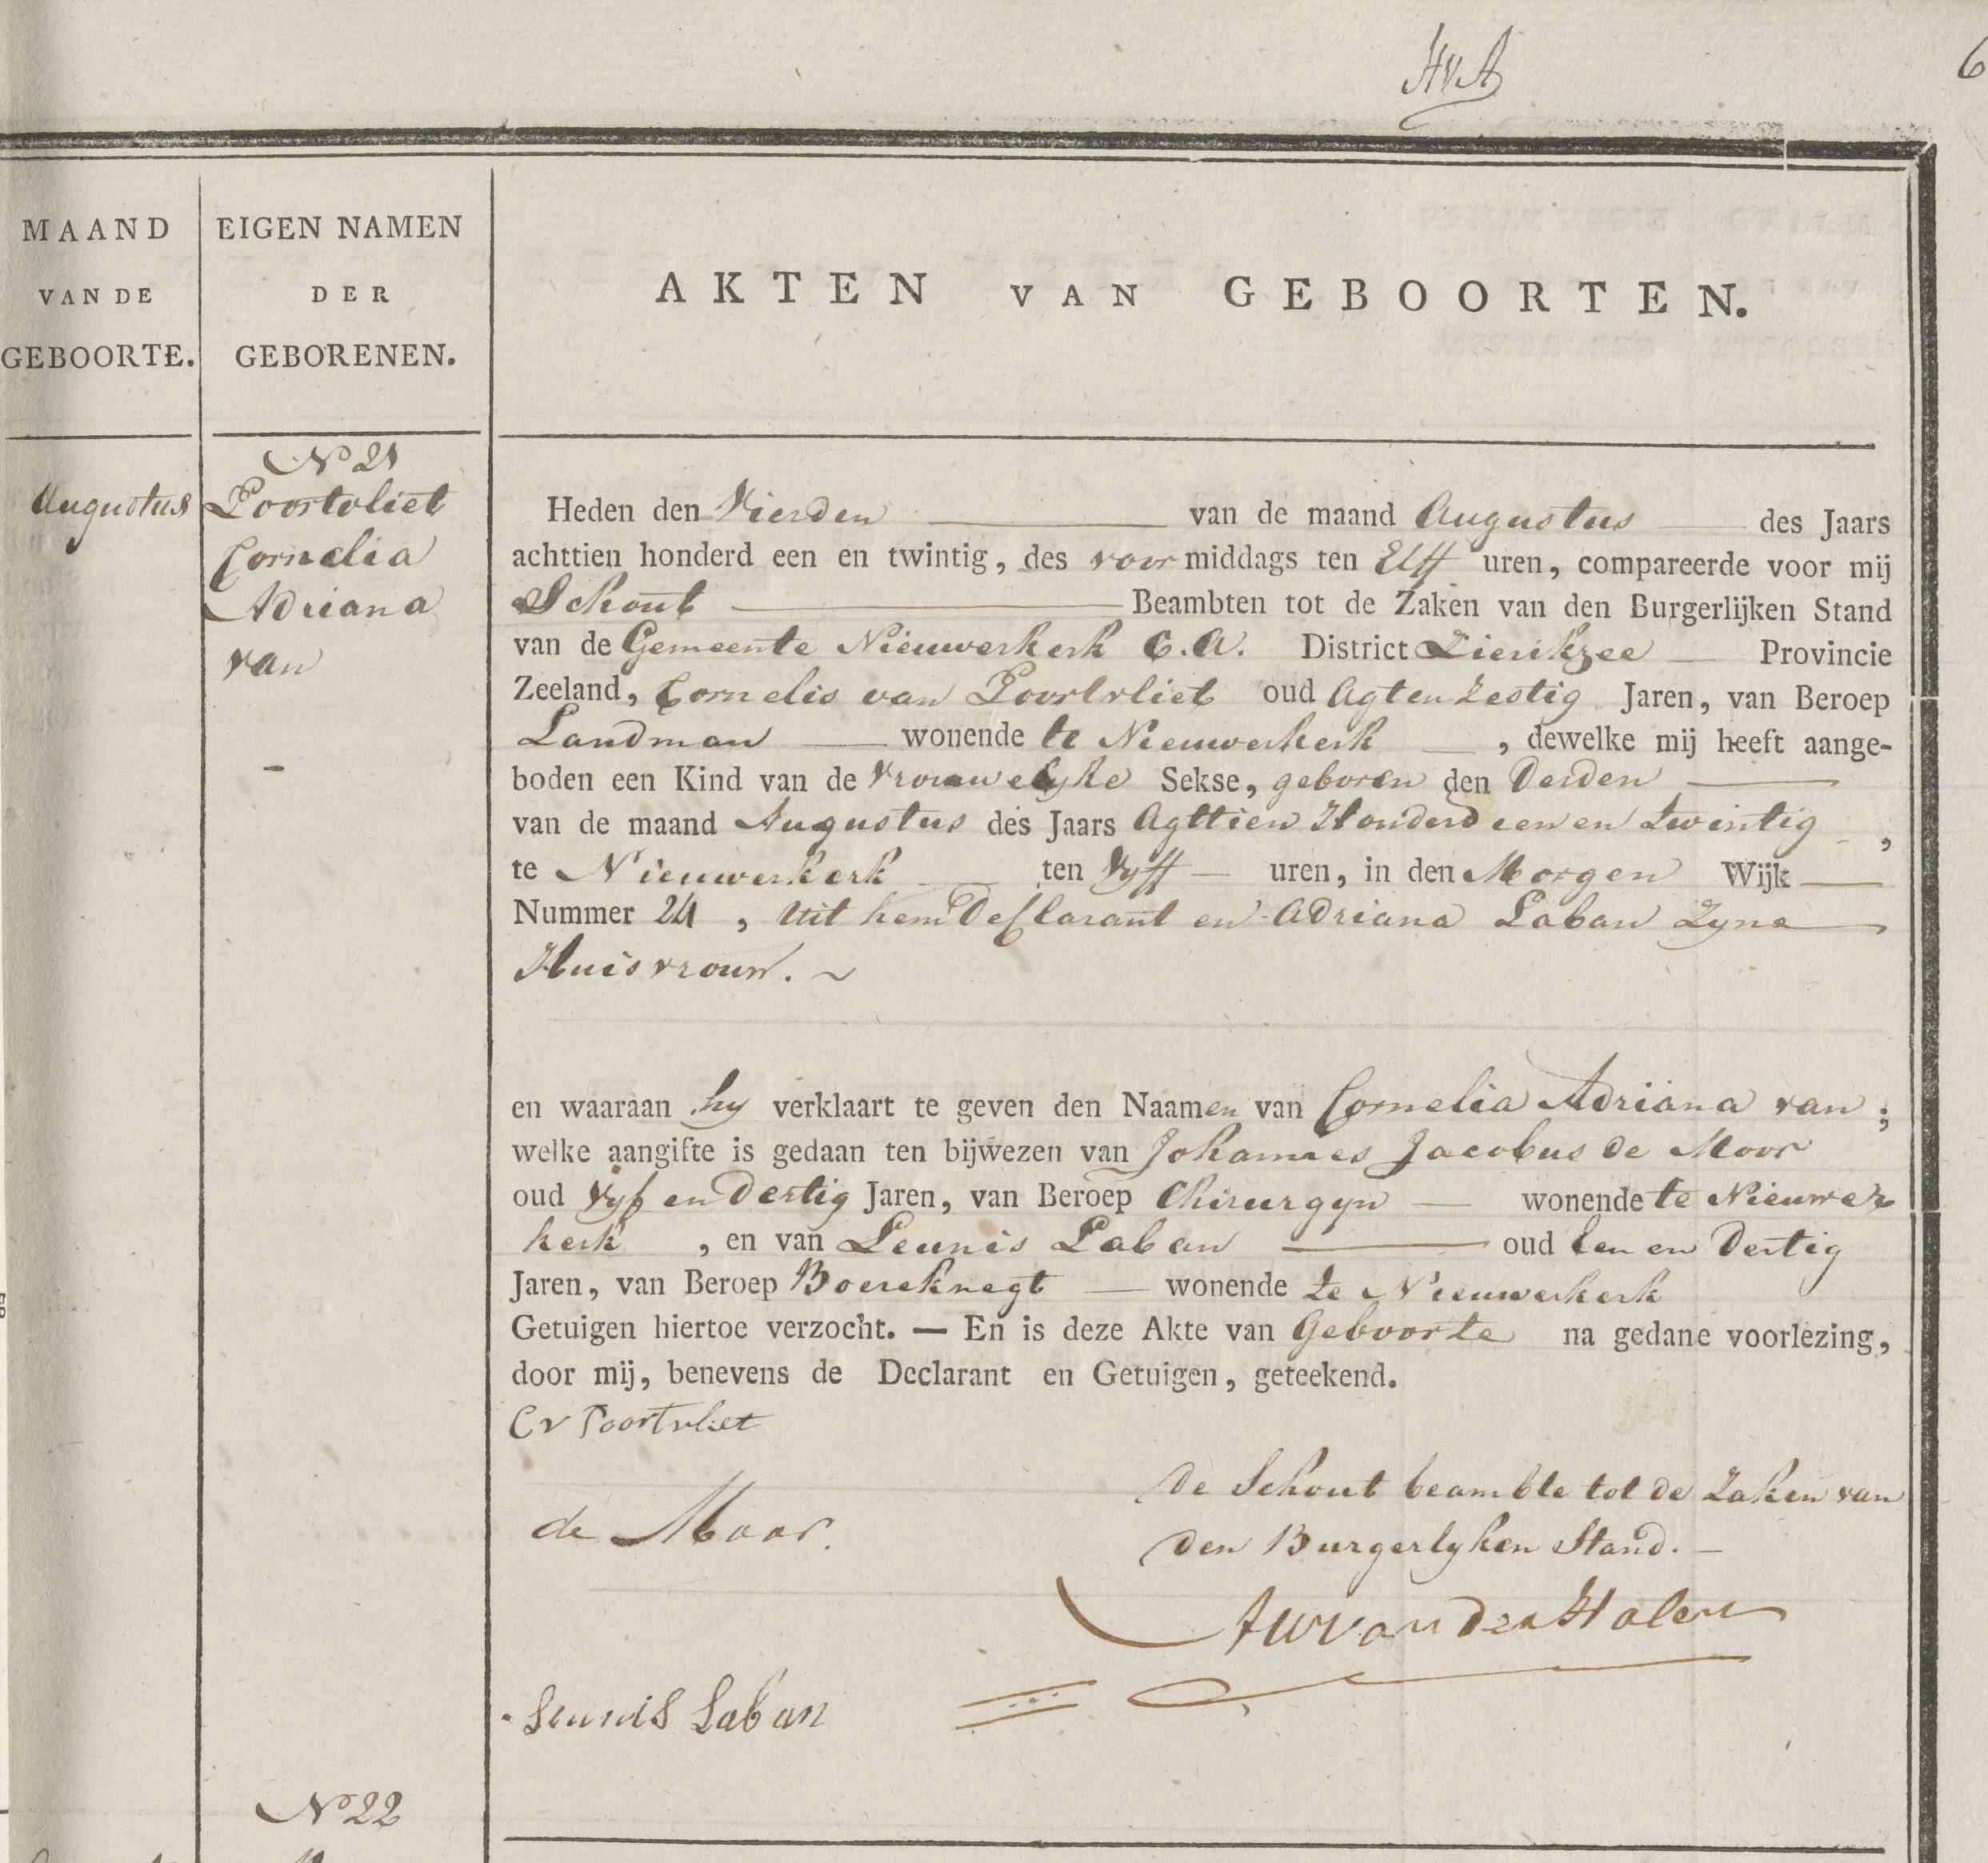 HvA
6
MAAND
VAN DE
GEBOORTE.
EIGEN NAMEN
DER
GEBORENEN.
AKTEN VAN GEBOORTEN.
Augustus
No 21
Poortvliet
Cornelia
Adriana
van
Heden den Vierden van de maand Augustus des Jaars
achttien honderd een en twintig, des voormiddags ten Elff uren, compareerde voor mij
Schout Beambten tot de Zaken van den Burgerlijken Stand
van de Gemeente Nieuwerkerk C.A. District Zierikzee Provincie
Zeeland, Cornelis van Poortvliet oud Agt en Zestig Jaren, van Beroep
Landman wonende te Nieuwerkerk, dewelke mij heeft aange-
boden een Kind van de Vrouwelyke Sekse, geboren den Derden
van de maand Augustus des Jaars Agttien Honderd een en Twintig,
te Nieuwerkerk ten Vyff uren, in den Morgen Wijk
Nummer 24, Uit hem Declarant en Adriana Laban Zyne
Huisvrouw.
en waaraan hy verklaart te geven den Naamen van Cornelia Adriana van;
welke aangifte is gedaan ten bijwezen van Johannes Jacobus de Moor
oud Vyf en Dertig Jaren, van Beroep Chirurgyn wonende te Nieuwer
kerk, en van Leunis Laban oud Een en Dertig
Jaren, van Beroep Boereknegt wonende te Nieuwerkerk
Getuigen hiertoe verzocht. — En is deze Akte van Geboorte na gedane voorlezing,
door mij, benevens de Declarant en Getuigen, geteekend.
Cv Poortvliet
De Schout beambte tot de Zaken van
de Moor.
Den Burgerlyken Stand.
van der Halen
Leunis Laban
No 22